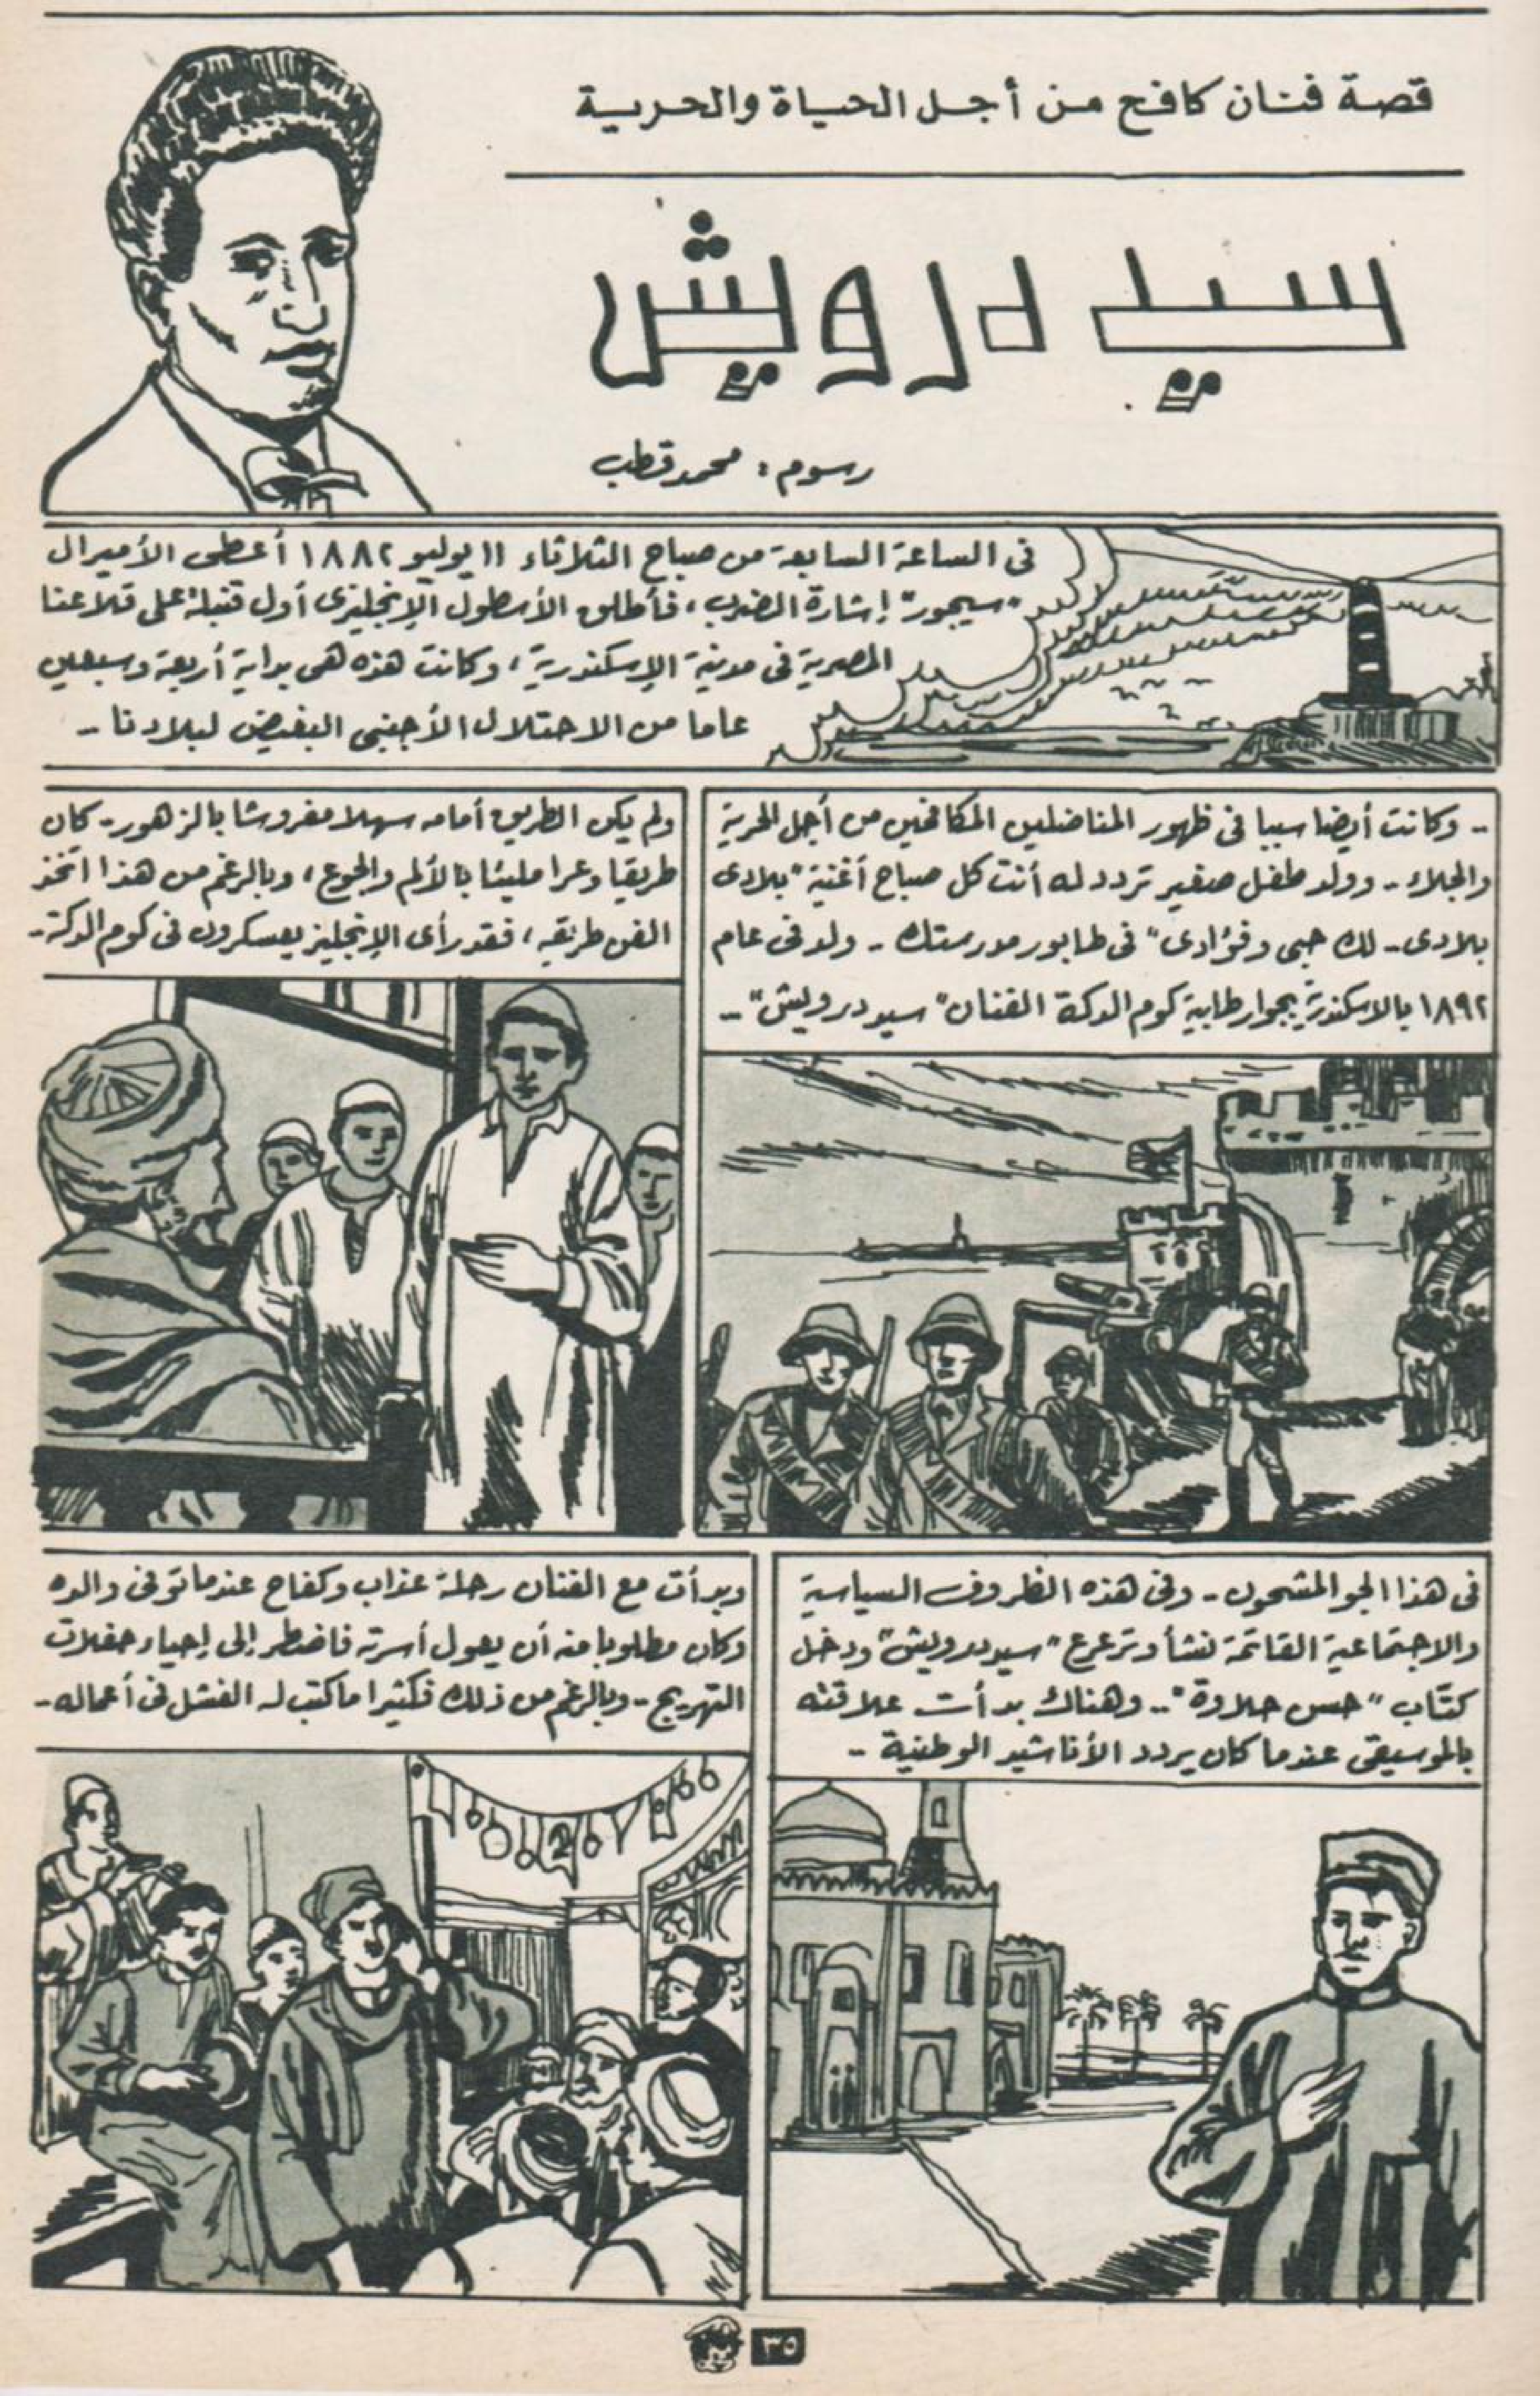 قصة فنان كافح من أجل الحياة والحرية
سيد درويش
رسوم : محمد قطب
فى الساعة السابعة من صباح الثلاثاء ١١ يوليو ١٨٨٢ أعطى الأميرال
"سيجور" إشارة الضرب ، فأطلق الأسطول الإنجليزى أول قنبلة على قلاعنا
المصرية فى مدينة الإسكندرية ، وكانت هذه هى بداية أربعة وسبعين
عاما من الاحتلال الأجنبى البغيض لبلادنا ..
.. وكانت أيضا سببا فى ظهور المناضلين المكافحين من أجل الحرية
والجلاء .. وولد طفل صغير تردد له أنت كل صباح أغنية "بلادى
بلادى .. لك حبى وفؤادى" فى طابور مدرستك .. ولد فى عام
١٨٩٢ بالاسكندرية بجوار طابية كوم الدكة الفنان "سيد درويش" ..
ولم يكن الطريق أمامه سهلا مفروشا بالزهور .. كان
طريقا وعرا مليئا بالألم والجوع ، وبالرغم من هذا اتخذ
الفن طريقه ، فقد رأى الإنجليز يعسكرون فى كوم الدكة ..
فى هذا الجو المشحون .. وفى هذه الظروف السياسية
والاجتماعية القاتمة نشأ وترعرع "سيد درويش" ودخل
كتّاب "حسن حلاوة" .. وهناك بدأت علاقته
بالموسيقى عندما كان يردد الأناشيد الوطنية ..
وبدأت مع الفنان رحلة عذاب وكفاح عندما توفى والده
وكان مطلوبا منه أن يعول أسرته فاضطر إلى إحياء حفلات
التهريج .. وبالرغم من ذلك فكثيرا ما كتب له الفشل فى أعماله ..
٣٥